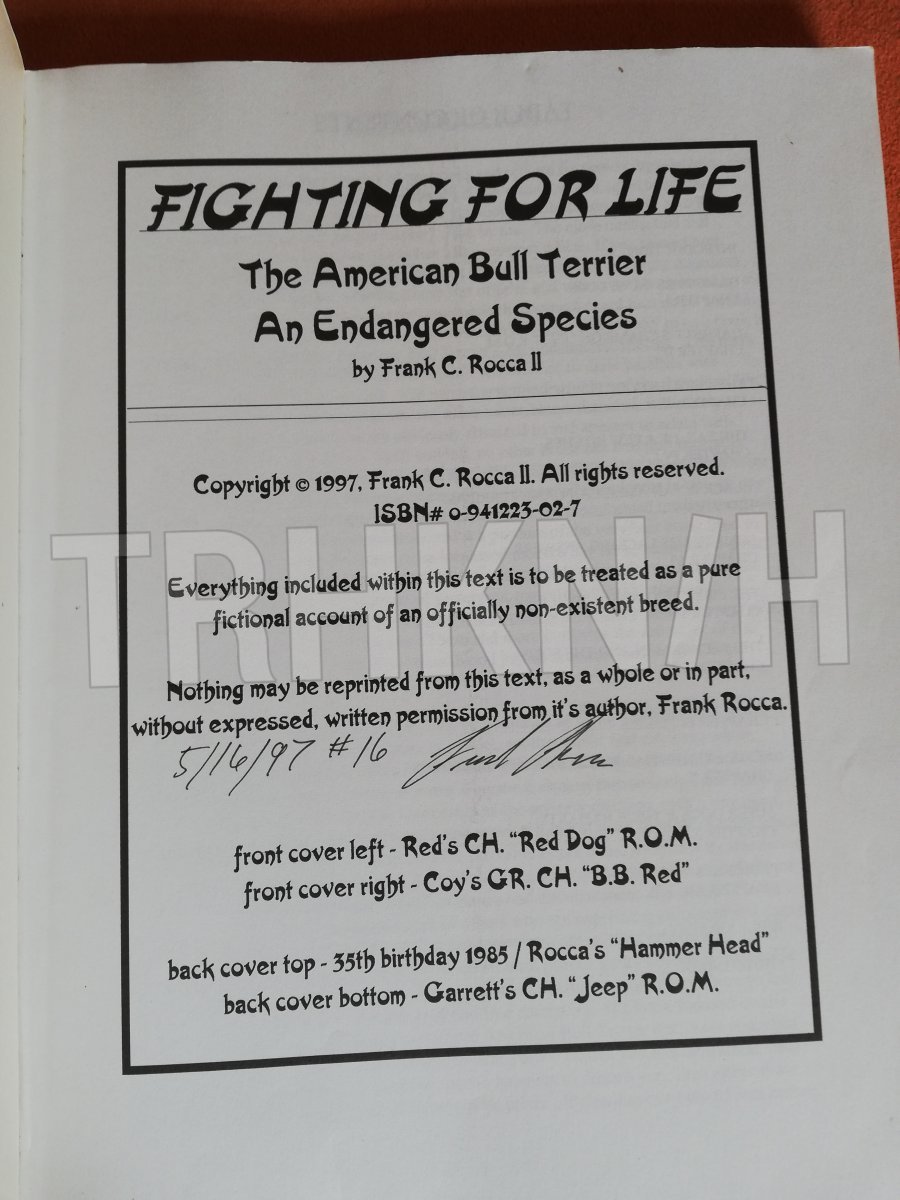 FIGHTING FOR LIFE
The American Bull Terrier
An Endangered Species
by Frank C. Rocca II
Copyright © 1997, Frank C. Rocca II. All rights reserved.
ISBN# 0-941223-02-7
Everything included within this text is to be treated as a pure
fictional account of an officially non-existent breed.
TRHKN/H
Nothing may be reprinted from this text, as a whole or in part,
without expressed, written permission from it's author, Frank Rocca.
5/16/97 #16
front cover left - Red's CH. "Red Dog" R.O.M.
front cover right - Coy's GR. CH. "B.B. Red"
back cover top - 35th birthday 1985 / Rocca's "Hammer Head"
back cover bottom - Garrett's CH. "Jeep" R.O.M.